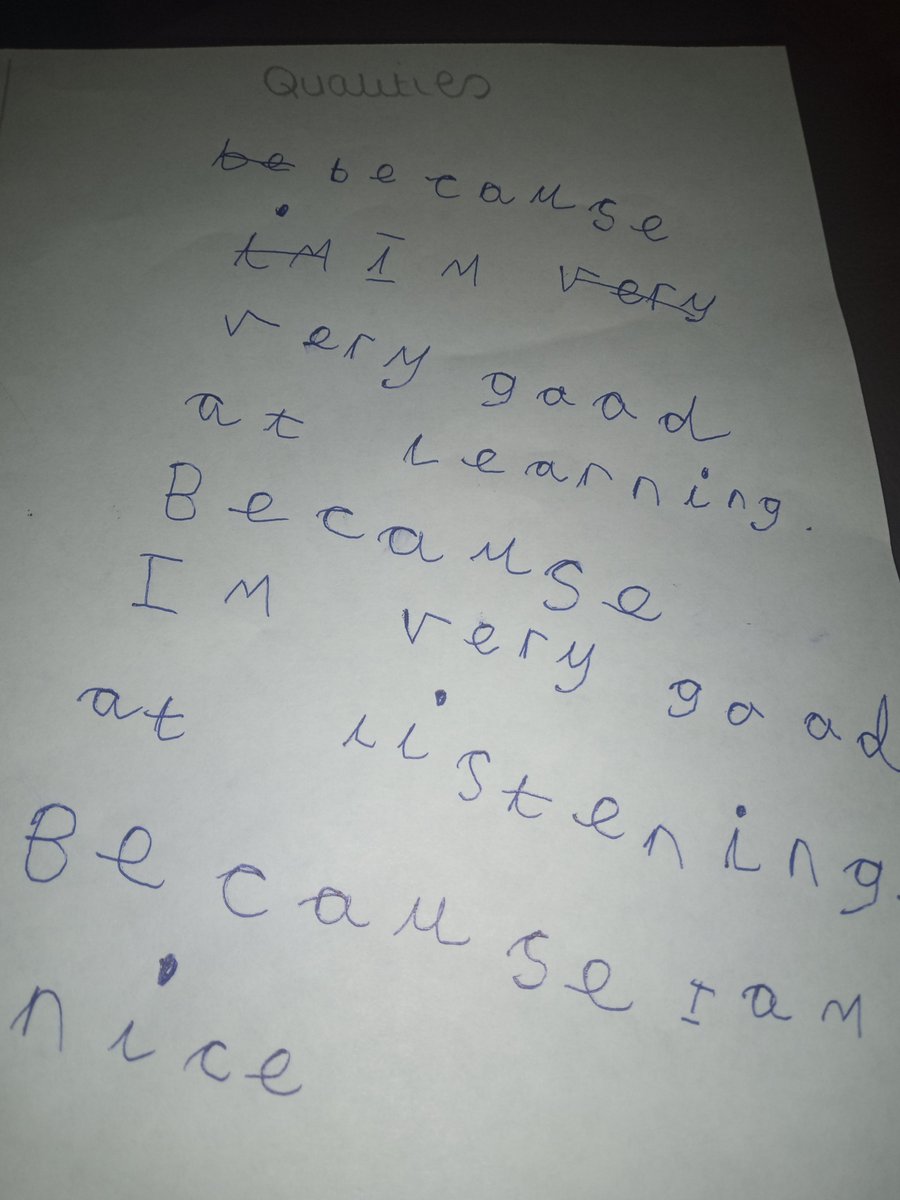 Qualities
be because
im Im very
very good
at learning.
Because
Im very good
at listening.
Because I am
nice